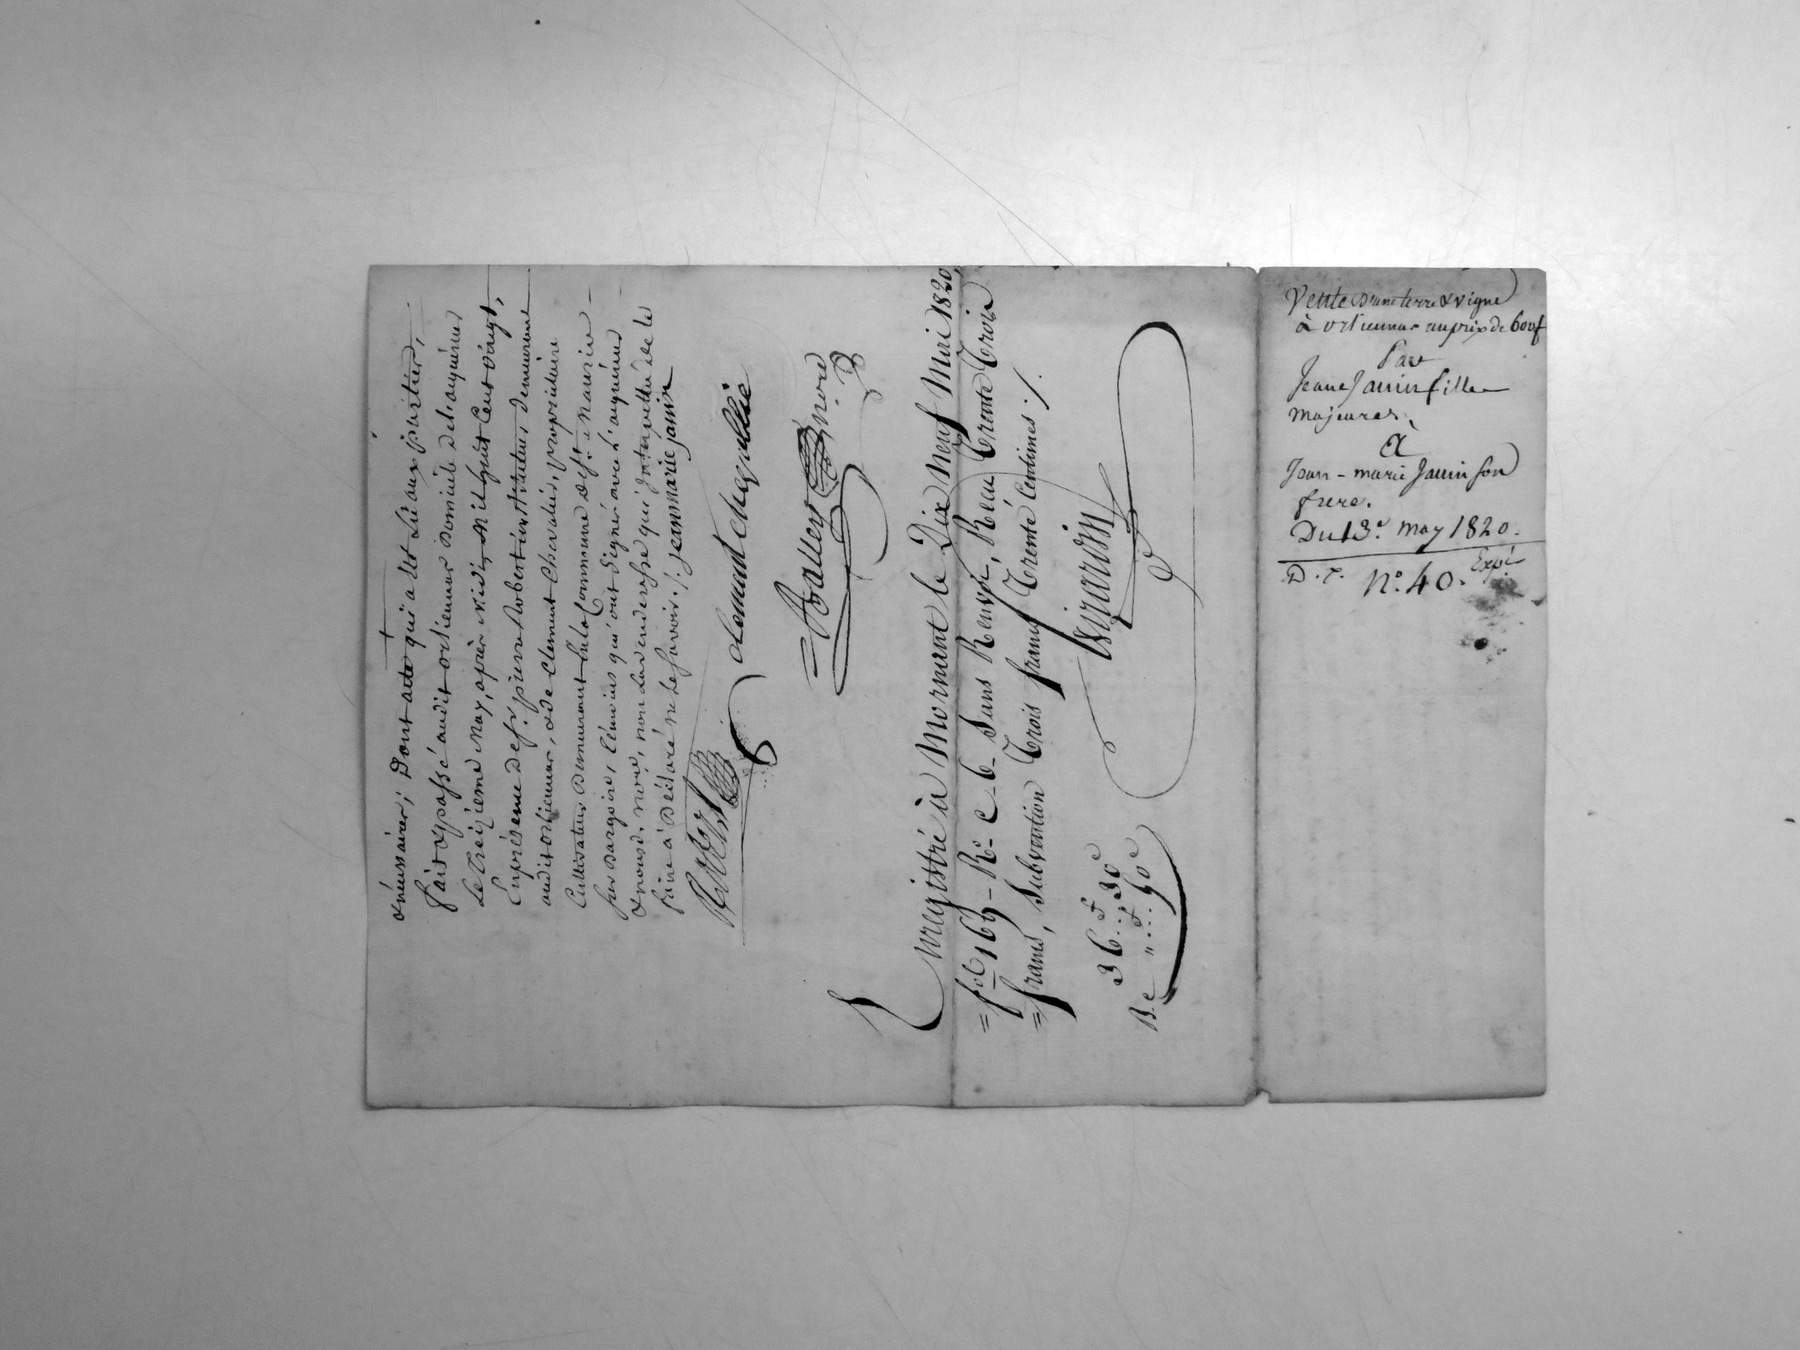 & nécessaires; Dont acte qui a été Lû aux parties,
fait & passé audit orliennas Domicile de l'acquéreur
Le treizieme May, après Midi, Mil huit Cent vingt,
En présence de s.r pierre Robert instituteur Demeurant
audit Orliennas, & de Clement Chevalier, propriétaire
Cultivateur Demeurant En la Commune de S.t Maurice
sur dargoire, témoins qui ont Signé avec l'acquéreur
& nousd. no.re, non La venderesse qui Interpellée de le
faire à Déclaré ne Le savoir./. jean marie janin
Robert
clemant chevallie
Avalley no.re
Enregistré à Mornant le Dix Neuf Mai 1820,
= f.o 169 - R.o C. 6. Sans Renvoi, Recu Trente Trois
= francs, Subvention Trois francs Trente Centimes ./.
36.f..30.c
B.e ".f..50.c
Vente d'une terre & vigne
à orliennas au prix de 600f
Par
Jeane Janin fille
majeure,
A
Jean-marie Janin son
frere.
Du 13.e may 1820.
D. T. N.o 40. Exp.é